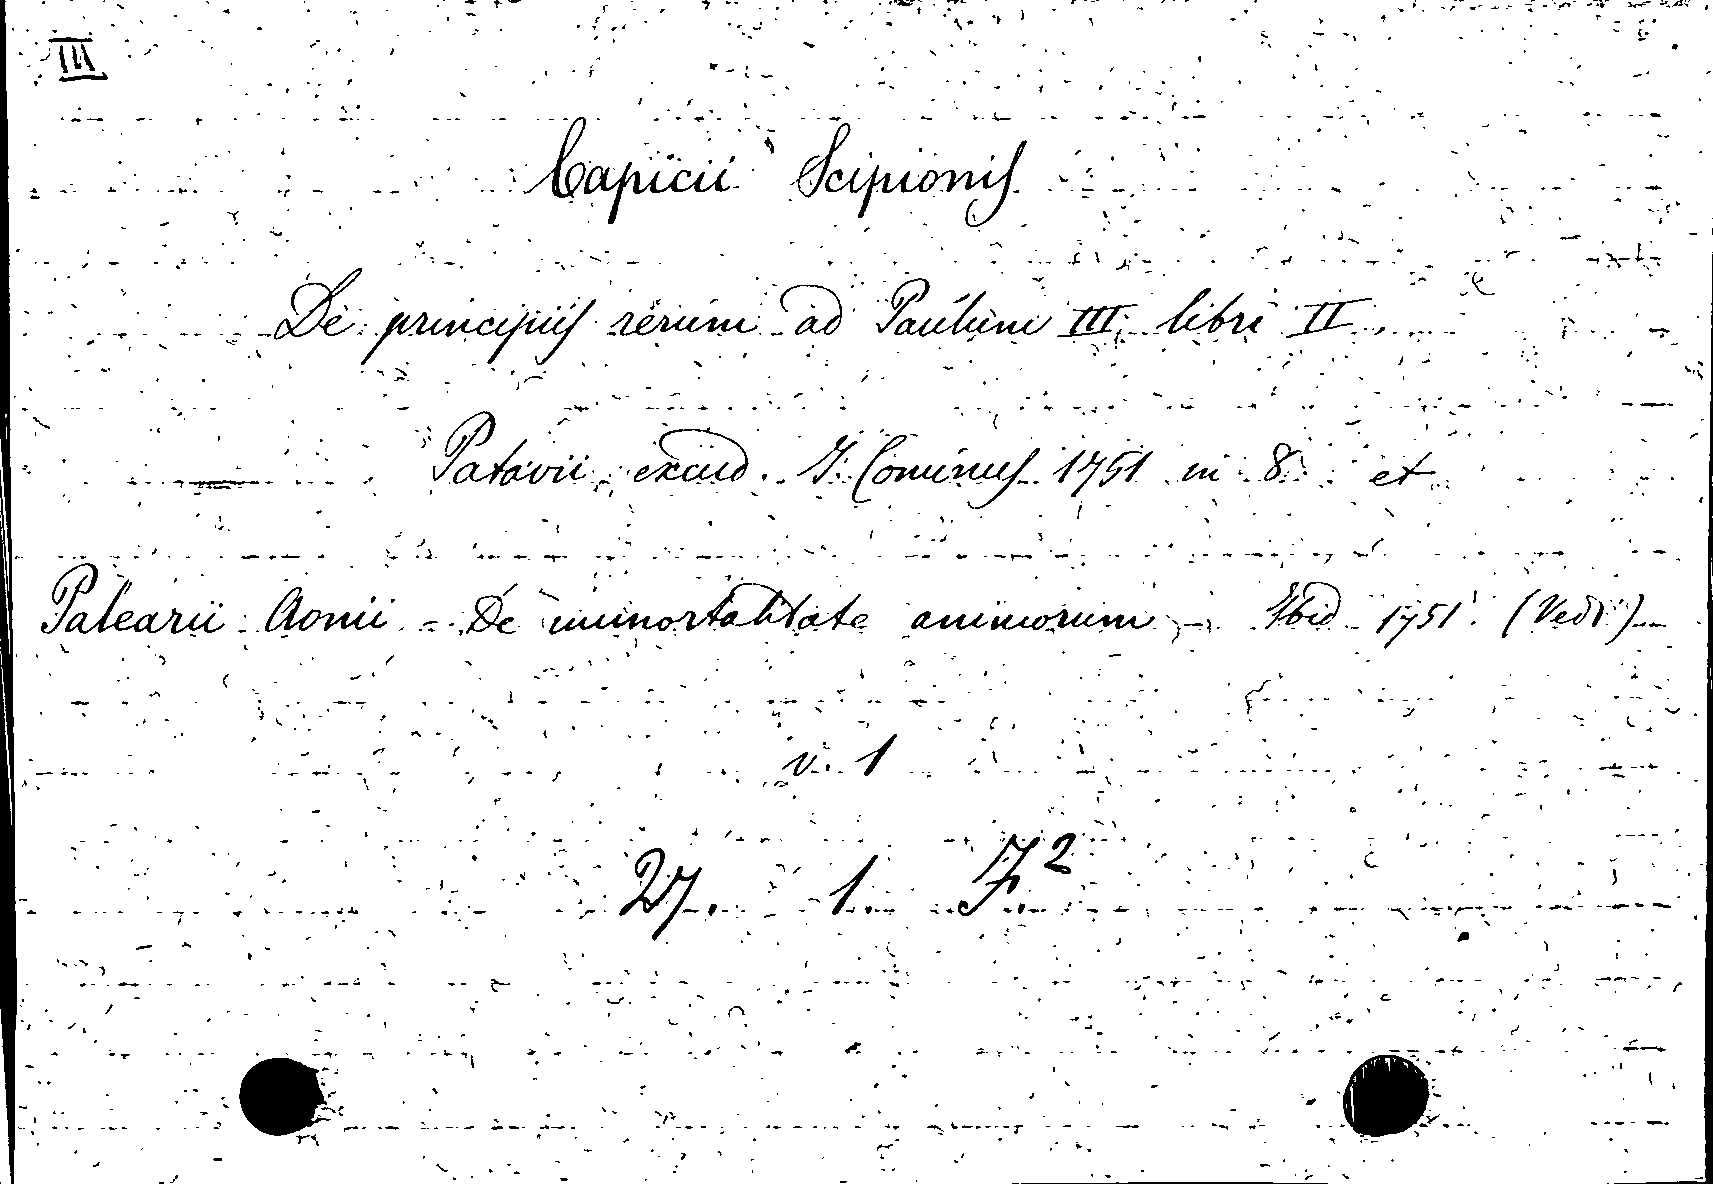 III
Capicii Scipionis
De principiis rerum ad Paulum III libri II
Patavii excud. J. Cominus 1751 in 8 et
Palearii Aonii - De immortalitate animorum - Ibid 1751. (Vedi)
v. 1
27. 1. Z²